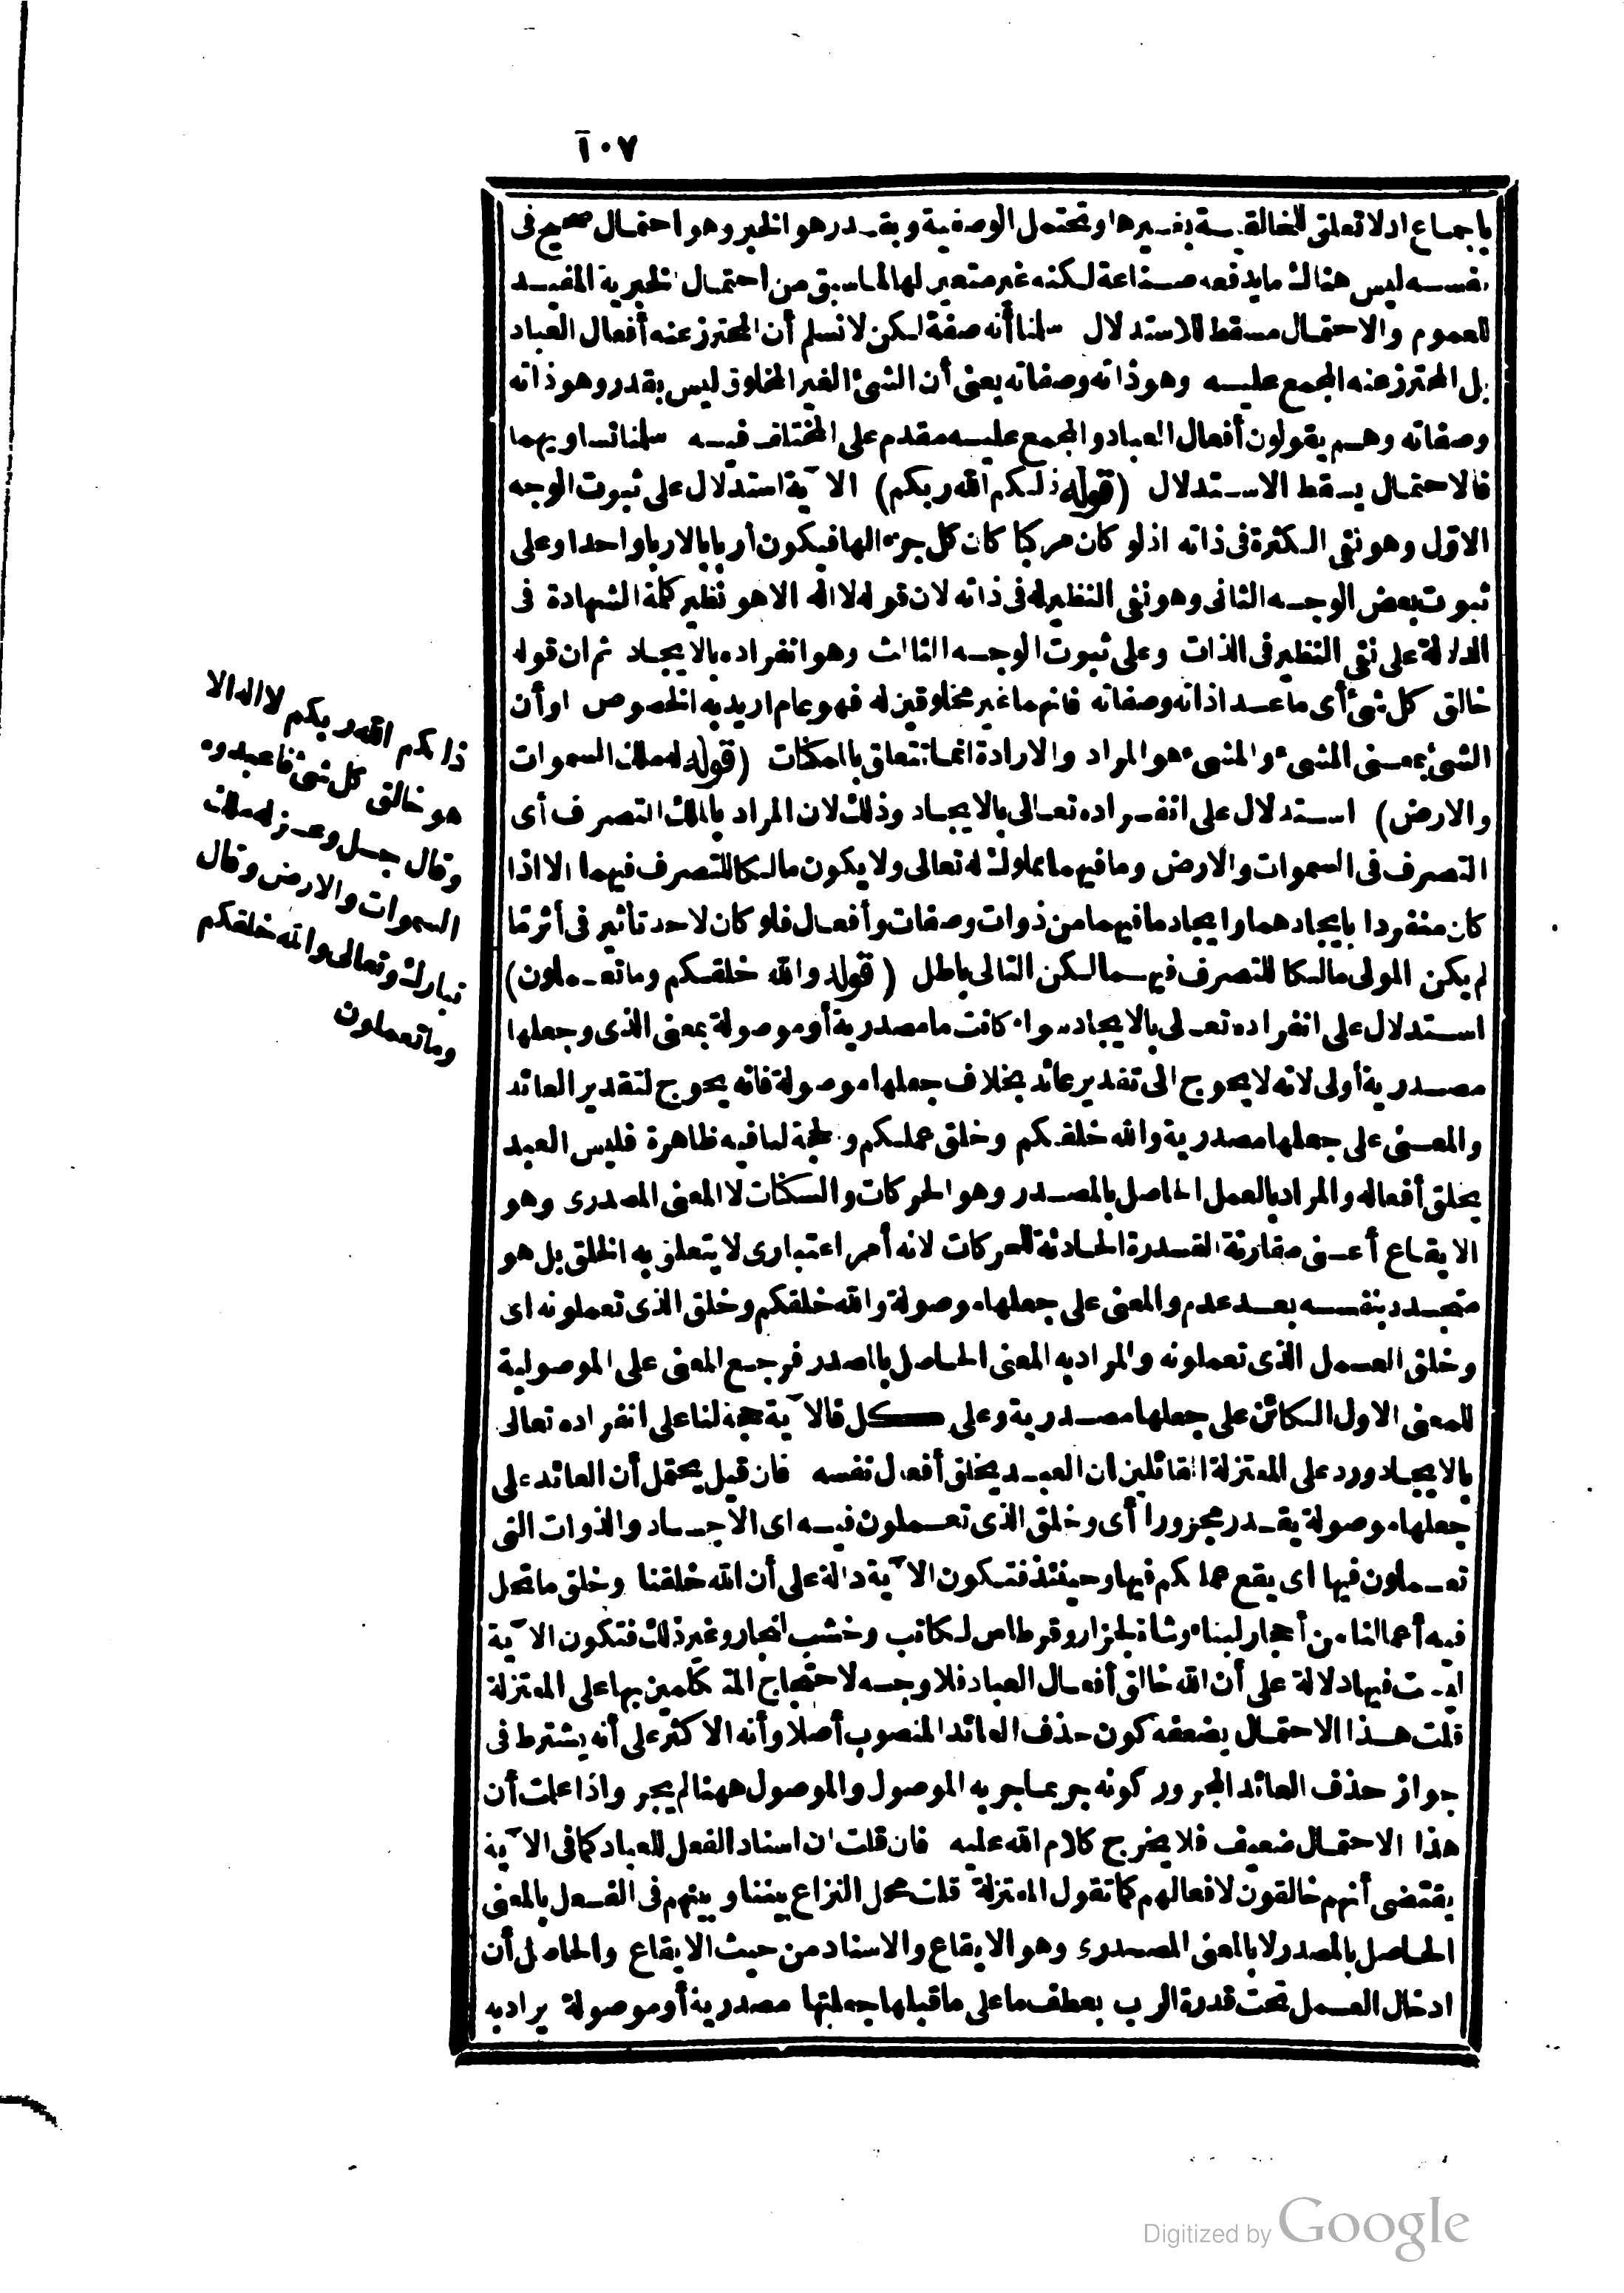 ١٠٧
باجماع اذ لا تعلق للخالقية بغيرها وتحتمل الوصفية وبقدر هو الخبر وهو احتمال صحيح فى
نفسه ليس هناك ما يدفعه صناعة لكنه غير متعين لها لما سبق من احتمال الخبرية المفيد
للعموم والاحتمال مسقط للاستدلال سلمنا أنه صفة لكن لا نسلم أن المحترز عنه أفعال العباد
بل المحترز عنه المجمع عليه وهو ذاته وصفاته يعنى أن الشئ الغير المخلوق ليس بقدر وهو ذاته
وصفاته وهم يقولون أفعال العباد والمجمع عليه مقدم على المختلف فيه سلمنا تساويهما
فالاحتمال يسقط الاستدلال (قوله ذلكم الله ربكم) الآية استدلال على ثبوت الوجه
الاوّل وهو نفى الكثرة فى ذاته اذ لو كان مركبا كان كل جزء الها فيكون أربابا لا ربا واحدا وعلى
ثبوت بعض الوجه الثانى وهو نفى النظير له فى ذاته لان قوله لا اله الا هو نظير كلمة الشهادة فى
الدلالة على نفى النظير فى الذات وعلى ثبوت الوجه الثالث وهو انفراده بالايجاد ثم ان قوله
خالق كل شئ أى ما عدا ذاته وصفاته فانهما غير مخلوقين له فهو عام اريد به الخصوص او أن
الشئ بمعنى المشىء والمشىء هو المراد والارادة انما تتعلق بالممكنات (قوله له ملك السموات
والارض) استدلال على انفراده تعالى بالايجاد وذلك لان المراد بالملك التصرف أى
التصرف فى السموات والارض وما فيهما مملوك له تعالى ولا يكون مالكا للتصرف فيهما الا اذا
كان منفردا بايجادهما وايجاد ما فيهما من ذوات وصفات وأفعال فلو كان لاحد تأثير فى أثر مّا
لم يكن المولى مالكا للتصرف فيهما لكن التالى باطل (قوله والله خلقكم وما تعملون)
استدلال على انفراده تعالى بالايجاد سواء كانت ما مصدرية أو موصولة بمعنى الذى وجعلها
مصدرية أولى لانه لا يحوج الى تقدير عائد بخلاف جعلها موصولة فانه يحوج لتقدير العائد
والمعنى على جعلها مصدرية والله خلقكم وخلق عملكم والحجة لنا فيه ظاهرة فليس العبد
يخلق أفعاله والمراد بالعمل الحاصل بالمصدر وهو الحركات والسكنات لا المعنى المصدرى وهو
الايقاع أعنى مقارنة القدرة الحادثة للحركات لانه أمر اعتبارى لا يتعلق به الخلق بل هو
متجدد بنفسه بعد عدم والمعنى على جعلها موصولة والله خلقكم وخلق الذى تعملونه اى
وخلق العمل الذى تعملونه والمراد به المعنى الحاصل بالمصدر فرجع المعنى على الموصولية
للمعنى الاول الكائن على جعلها مصدرية وعلى كل فالآية حجة لنا على انفراده تعالى
بالايجاد ورد على المعتزلة القائلين ان العبد يخلق أفعال نفسه فان قيل يحتمل أن العائد على
جعلها موصولة يقدر مجرورا أى وخلق الذى تعملون فيه اى الاجساد والذوات التى
تعملون فيها اى يقع عملكم فيها وحينئذ فتكون الآية دالة على أن الله خلقنا وخلق ما تحل
فيه أعمالنا من أحجار لبناء وشاة لجزار وقرطاس لكاتب وخشب لنجار وغير ذلك فتكون الآية
ليست فيها دلالة على أن الله خالق أفعال العباد فلا وجه لاحتجاج المتكلمين بها على المعتزلة
قلت هذا الاحتمال يضعفه كون حذف العائد المنصوب أصلا وأنه الاكثر على أنه يشترط فى
جواز حذف العائد المجرور كونه جر بما جر به الموصول والموصول ههنا لم يجر واذا علمت أن
هذا الاحتمال ضعيف فلا يخرج كلام الله عليه فان قلت ان اسناد الفعل للعباد كما فى الآية
يقتضى أنهم خالقون لافعالهم كما تقول المعتزلة قلت محل النزاع بيننا وبينهم فى الفعل بالمعنى
الحاصل بالمصدر لا بالمعنى المصدرى وهو الايقاع والاسناد من حيث الايقاع والحاصل أن
ادخال العمل تحت قدرة الرب بعطف ما على ما قبلها جعلتها مصدرية أو موصولة يراد به
ذلكم الله ربكم لا اله الا
هو خالق كل شئ فاعبدوه
وقال جل وعز له ملك
السموات والارض وقال
تبارك وتعالى والله خلقكم
وما تعملون
Digitized by Google